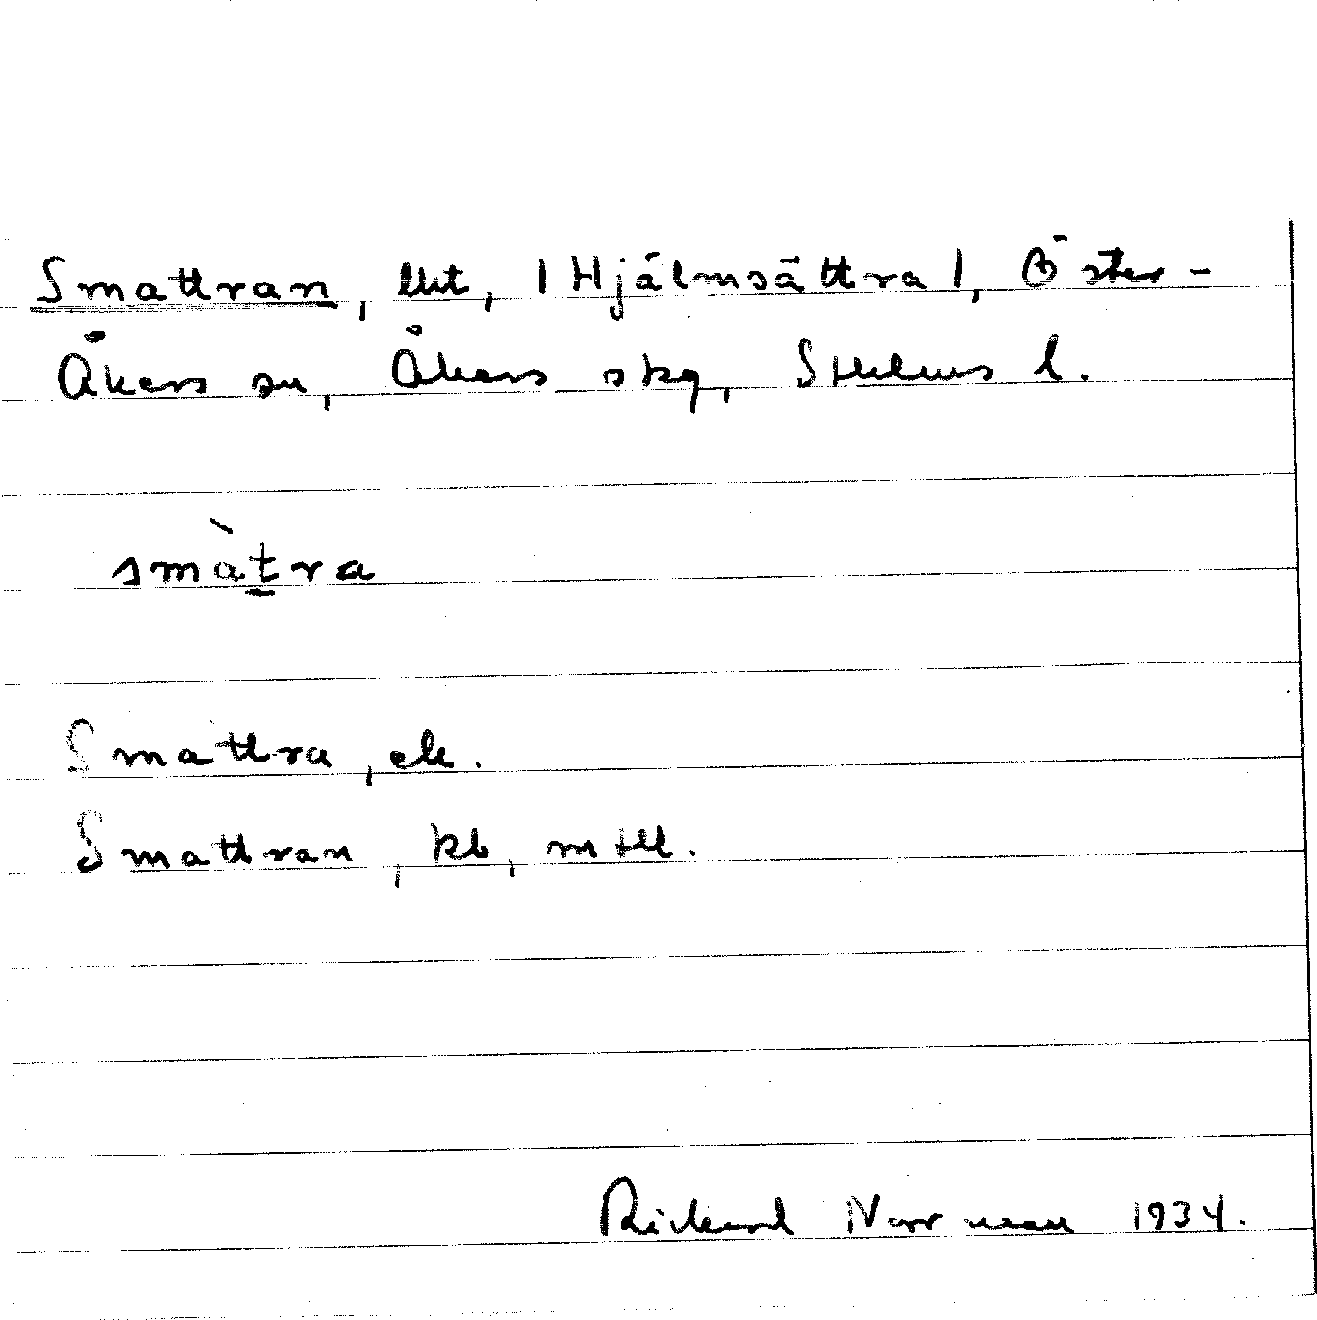 Smattran, lht, | Hjälmsättra |, Öster-
Åkers sn, Åkers skg, Sthlms l.
smàt̲ra
Smattra, ek.
Smattran, kb, mtll.
Rickard Norrman 1934.